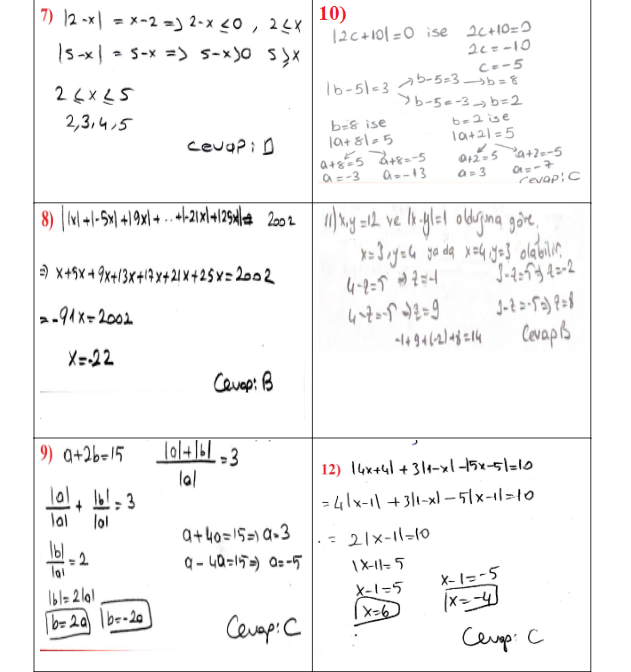 7) |2-x| = x-2 => 2-x ≤0 , 2≤x
|5-x| = 5-x => 5-x≥0 5≥x
2≤x≤5
2,3,4,5
Cevap: D
8) ||x|+|-5x|+|9x|+..+|-21x|+|25x|| = 2002
=> x+5x+9x+13x+17x+21x+25x=2002
=-91x=2002
x=-22
Cevap: B
9) a+2b=15 |a|+|b| / |a| = 3
|a|/|a| + |b|/|a| = 3
|b|/|a| = 2
|b|=2|a|
b=2a b=-2a
a+4a=15=> a=3
a-4a=15=> a=-5
Cevap: C
10)
|2c+10|=0 ise 2c+10=0
2c=-10
c=-5
|b-5|=3 b-5=3 → b=8
b-5=-3 → b=2
b=8 ise b=2 ise
|a+8|=5 |a+2|=5
a+8=5 a+8=-5 a+2=5 a+2=-5
a=-3 a=-13 a=3 a=-7
Cevap: C
11) x.y=12 ve |x-y|=1 olduğuna göre,
x=3,y=4 ya da x=4,y=3 olabilir.
4-z=5 => z=-1 3-z=5 => z=-2
4-z=-5 => z=9 3-z=-5 => z=8
-1+9+(-2)+8=14 Cevap B
12) |4x+4| + 3|1-x| -|5x-5|=10
=4|x-1| +3|1-x| -5|x-1|=10
= 2|x-1|=10
|x-1|=5
x-1=5 x-1=-5
x=6 x=-4
Cevap: C